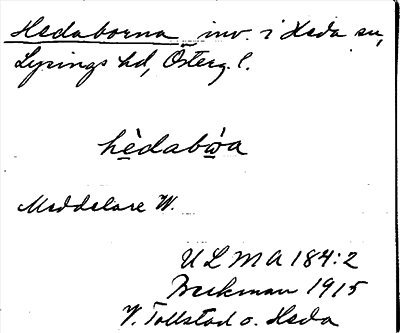 Hedaborna inv. i Heda sn,
Lysings hd, Österg. l.
hèdabωa
Meddelare W.
ULMA 184:2
Beckman 1915
V. Tollstad o. Heda